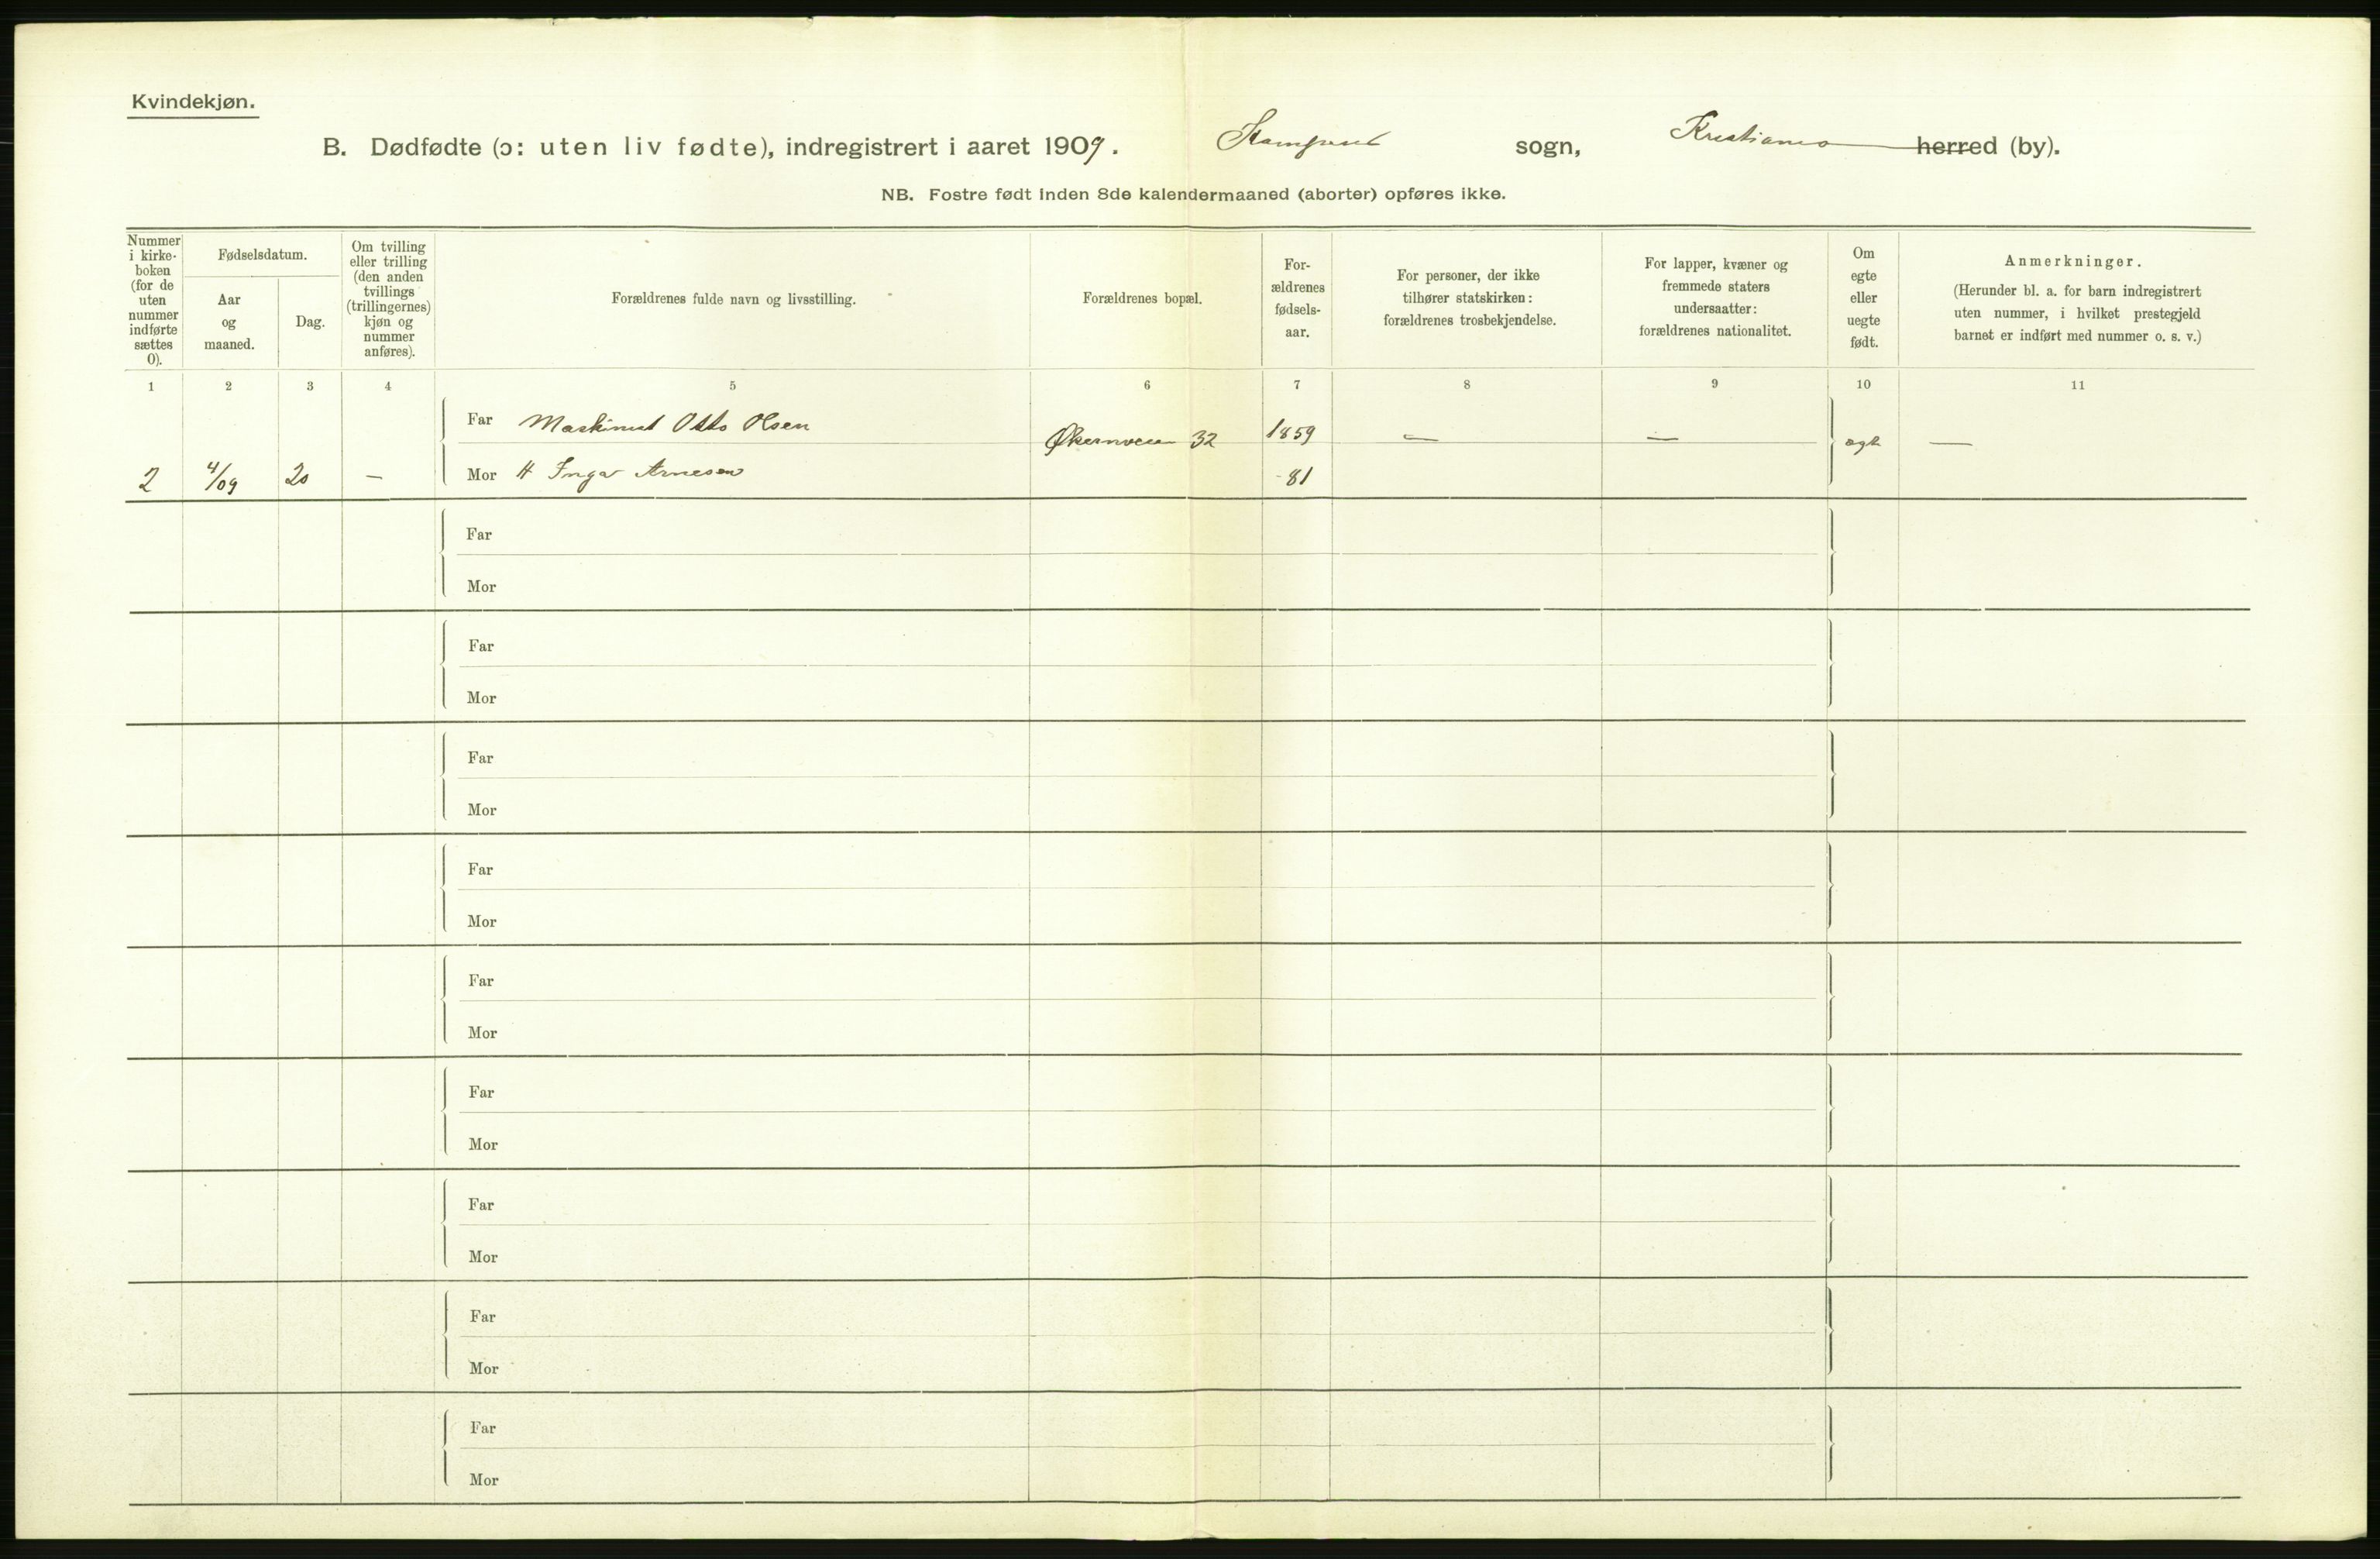 Kvindekjøn.
B. Dødfødte (ɔ: uten liv fødte), indregistrert i aaret 1909. Kampens sogn, Kristiania herred (by).
NB. Fostre født inden 8de kalendermaaned (aborter) opføres ikke.
Nummer i kirke-boken (for de uten nummer indførte sættes 0).
Fødselsdatum.
Aar og maaned.
Dag.
Om tvilling eller trilling (den anden tvillings (trillingernes) kjøn og nummer anføres).
Forældrenes fulde navn og livsstilling.
Forældrenes bopæl.
For-ældrenes fødsels-aar.
For personer, der ikke tilhører statskirken: forældrenes trosbekjendelse.
For lapper, kvæner og fremmede staters undersaatter: forældrenes nationalitet.
Om egte eller uegte født.
Anmerkninger.
(Herunder bl. a. for barn indregistrert uten nummer, i hvilket prestegjeld barnet er indført med nummer o. s. v.)
1 2 3 4 5 6 7 8 9 10 11
Far Maskinist Otto Olsen Økernveien 32 1859 — — egte —
2 4/09 20 — Mor H Inga Arnesen -81
Far
Mor
Far
Mor
Far
Mor
Far
Mor
Far
Mor
Far
Mor
Far
Mor
Far
Mor
Far
Mor